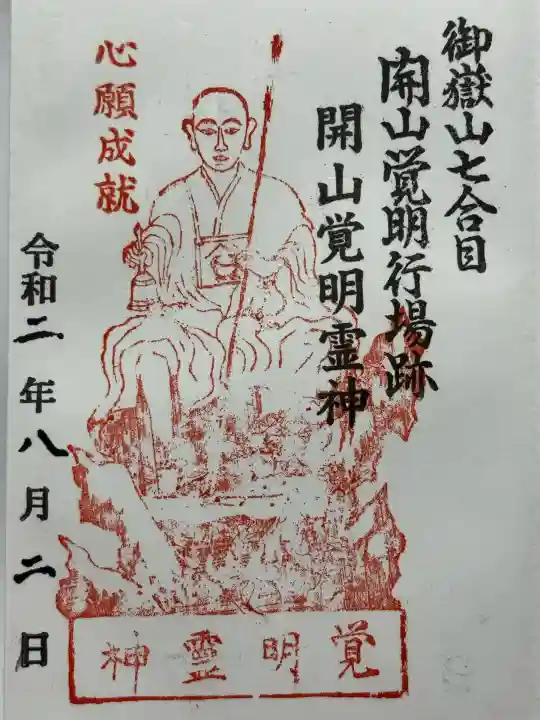 御嶽山七合目
開山覚明行場跡
開山覚明霊神
心願成就
令和二年八月二日
覚明霊神